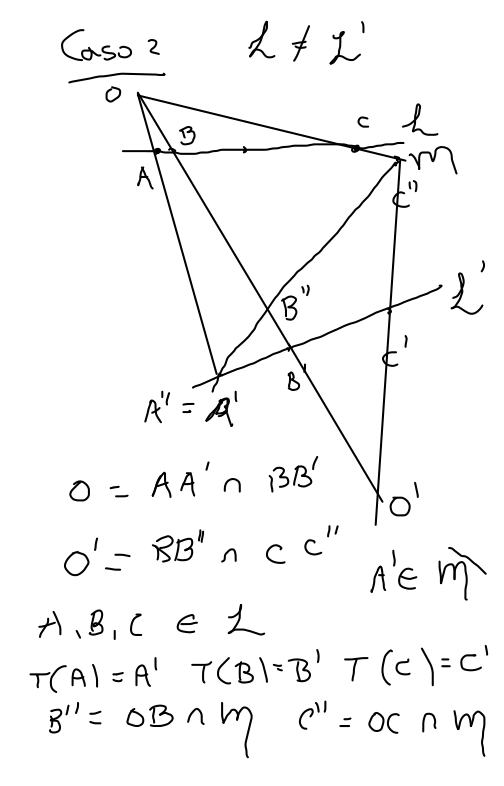 Caso 2 L ≠ L'
O
B C L
A m
C''
L'
B''
C'
B'
A'' = A'
O = AA' ∩ BB' O'
O' = BB'' ∩ C C''
A' ∈ m
A, B, C ∈ L
T(A) = A' T(B) = B' T(C) = C'
B'' = OB ∩ m C'' = OC ∩ m